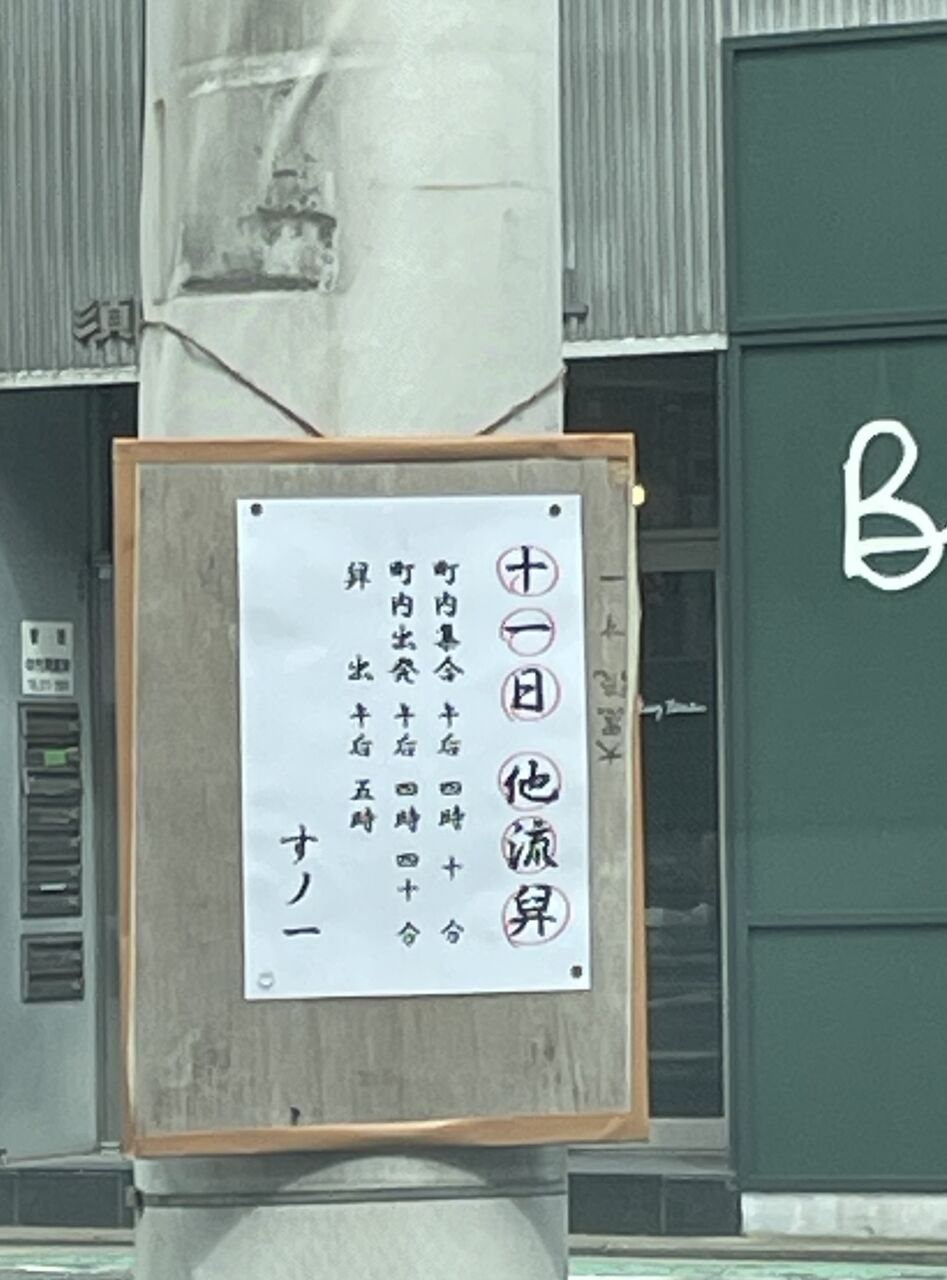 十一日 他流舁
町内集合 午后 四時 十分
町内出発 午后 四時 四十分
舁 出 午后 五時
すノ一
大黒流 すノ一
B